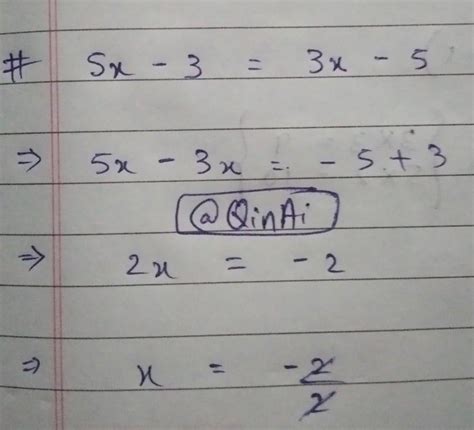 # 5x - 3 = 3x - 5
⇒ 5x - 3x = - 5 + 3
@QinAi
⇒ 2x = - 2
⇒ x = - 2/2